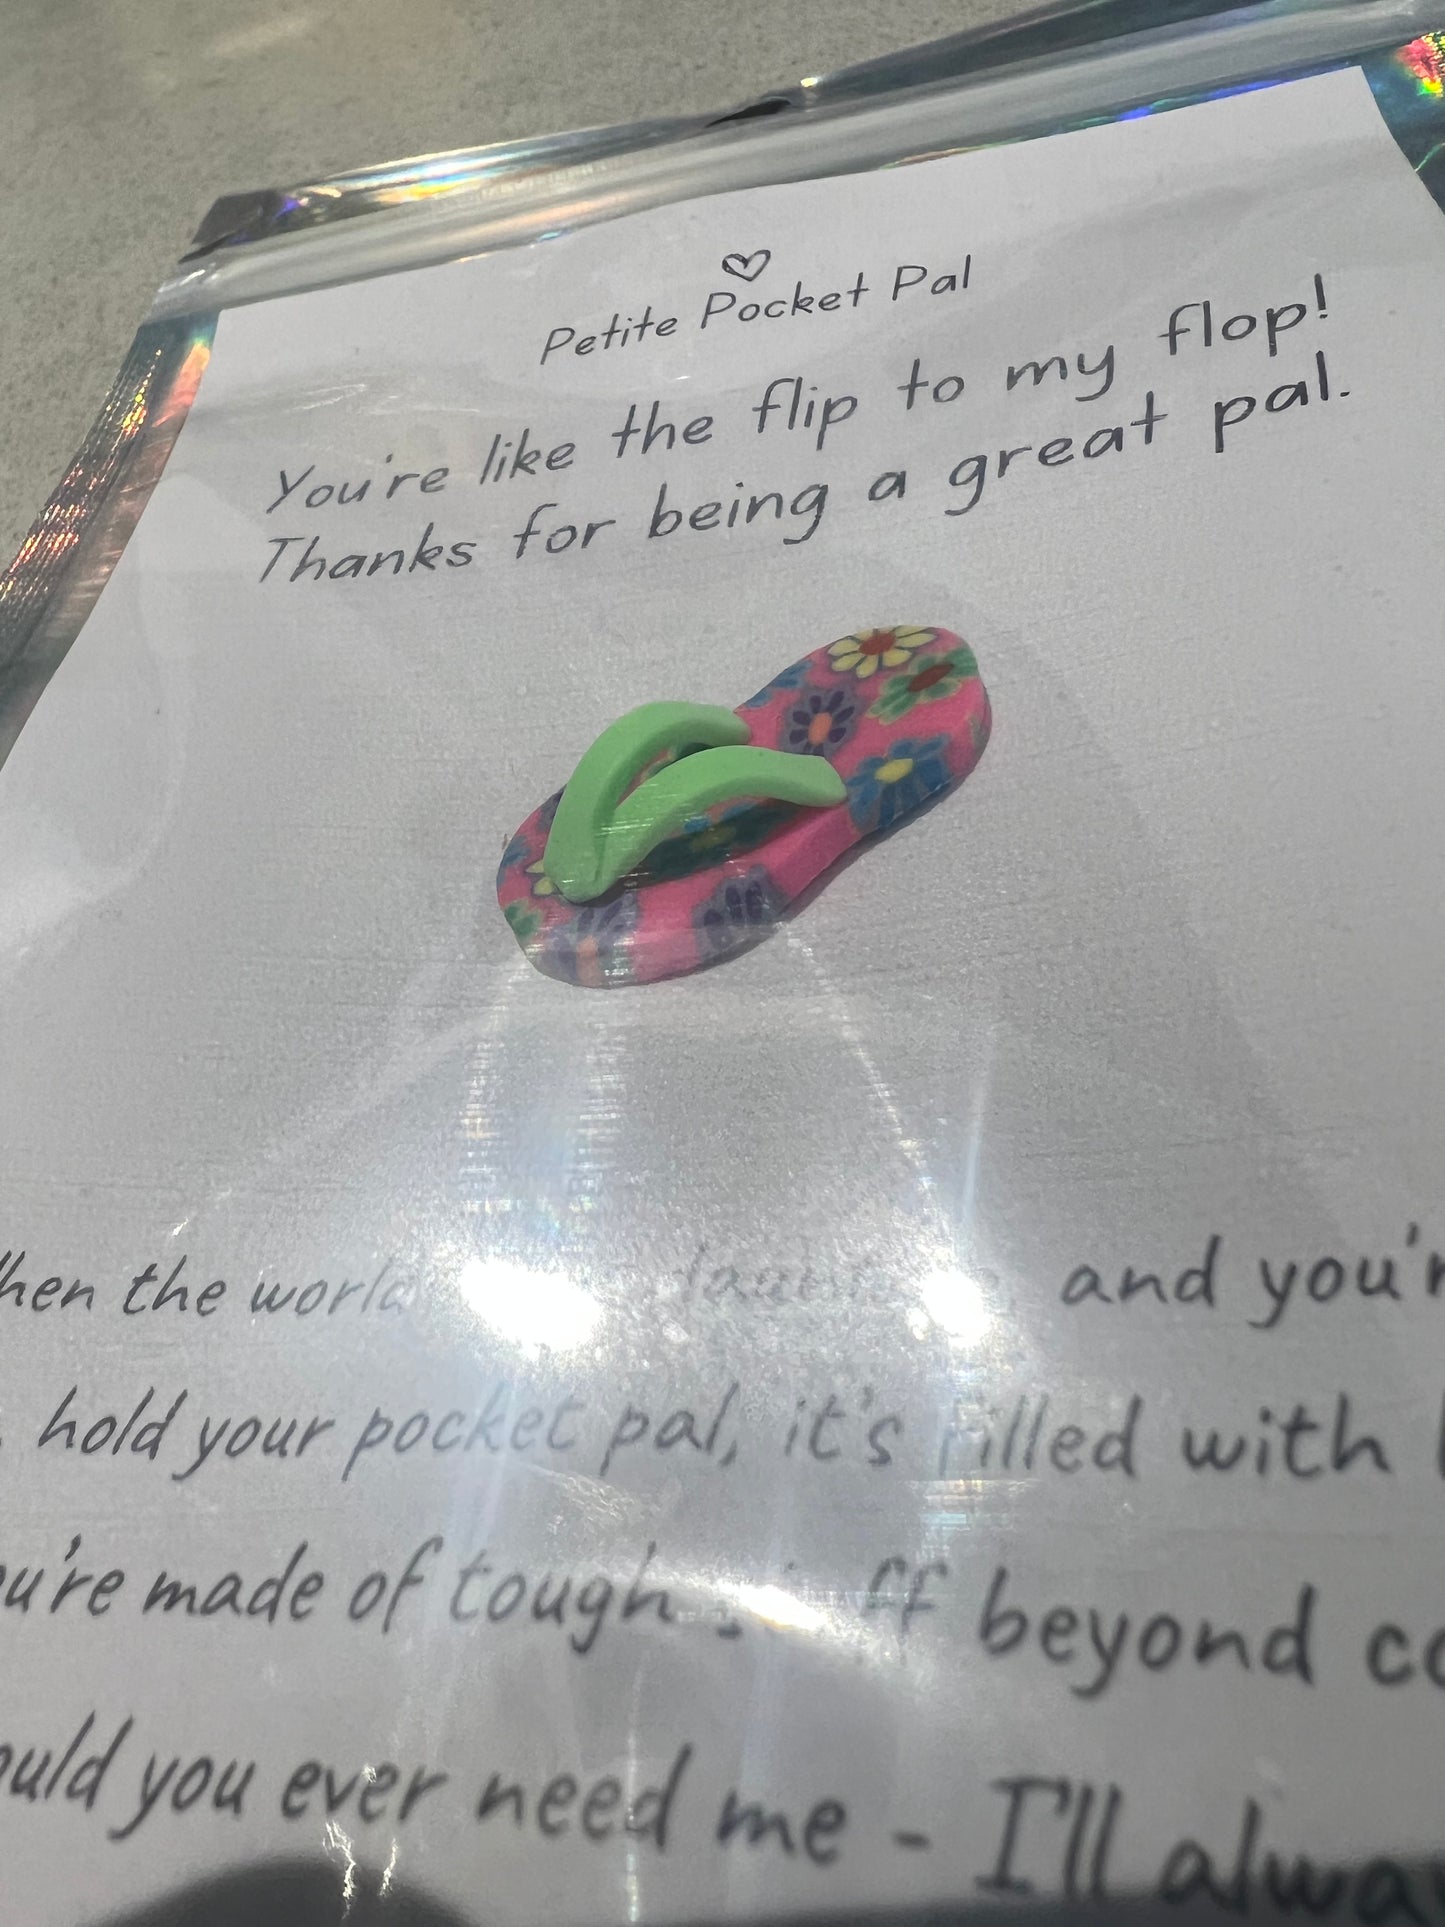 Petite Pocket Pal
You're like the flip to my flop!
Thanks for being a great pal.
hen the world and you'r
hold your pocket pal, it's filled with
ou're made of tough stuff beyond co
ould you ever need me - I'll alway